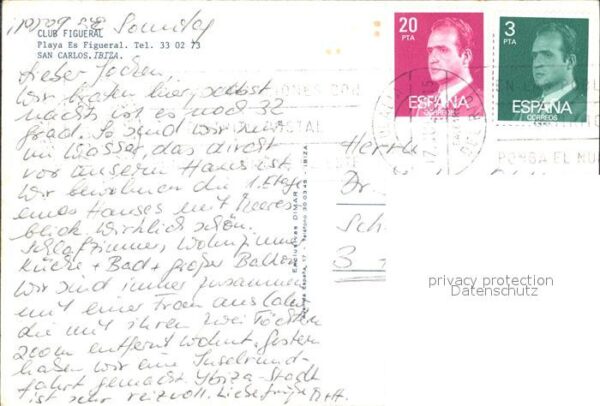 Sonntag
CLUB FIGUERAL
Playa Es Figueral. Tel. 33 02 73
SAN CARLOS. IBIZA.
Lieber Jochen,
Wir braten hier, selbst
nachts ist es noch 32
Grad. So sind wir nur
im Wasser, das direkt
vor unserm Haus ist.
Wir bewohnen die 1. Etage
eines Hauses mit Meeres-
blick. Wirklich schön.
Schlafzimmer, Wohnzimmer
Küche + Bad + großer Balkon
Wir sind immer zusammen
mit einer Frau aus
die mit ihren zwei Töchtern
200m entfernt wohnt. Gestern
haben wir eine Inselrund-
fahrt gemacht. Ybiza-Stadt
ist sehr reizvoll. Liebe Grüße
Exclusivas DIMAR
IBIZA
20
PTA
ESPAÑA
CORREOS
3
PTA
ESPAÑA
CORREOS
PONGA EL
Herrn
Dr.
Sch
3
privacy protection
Datenschutz